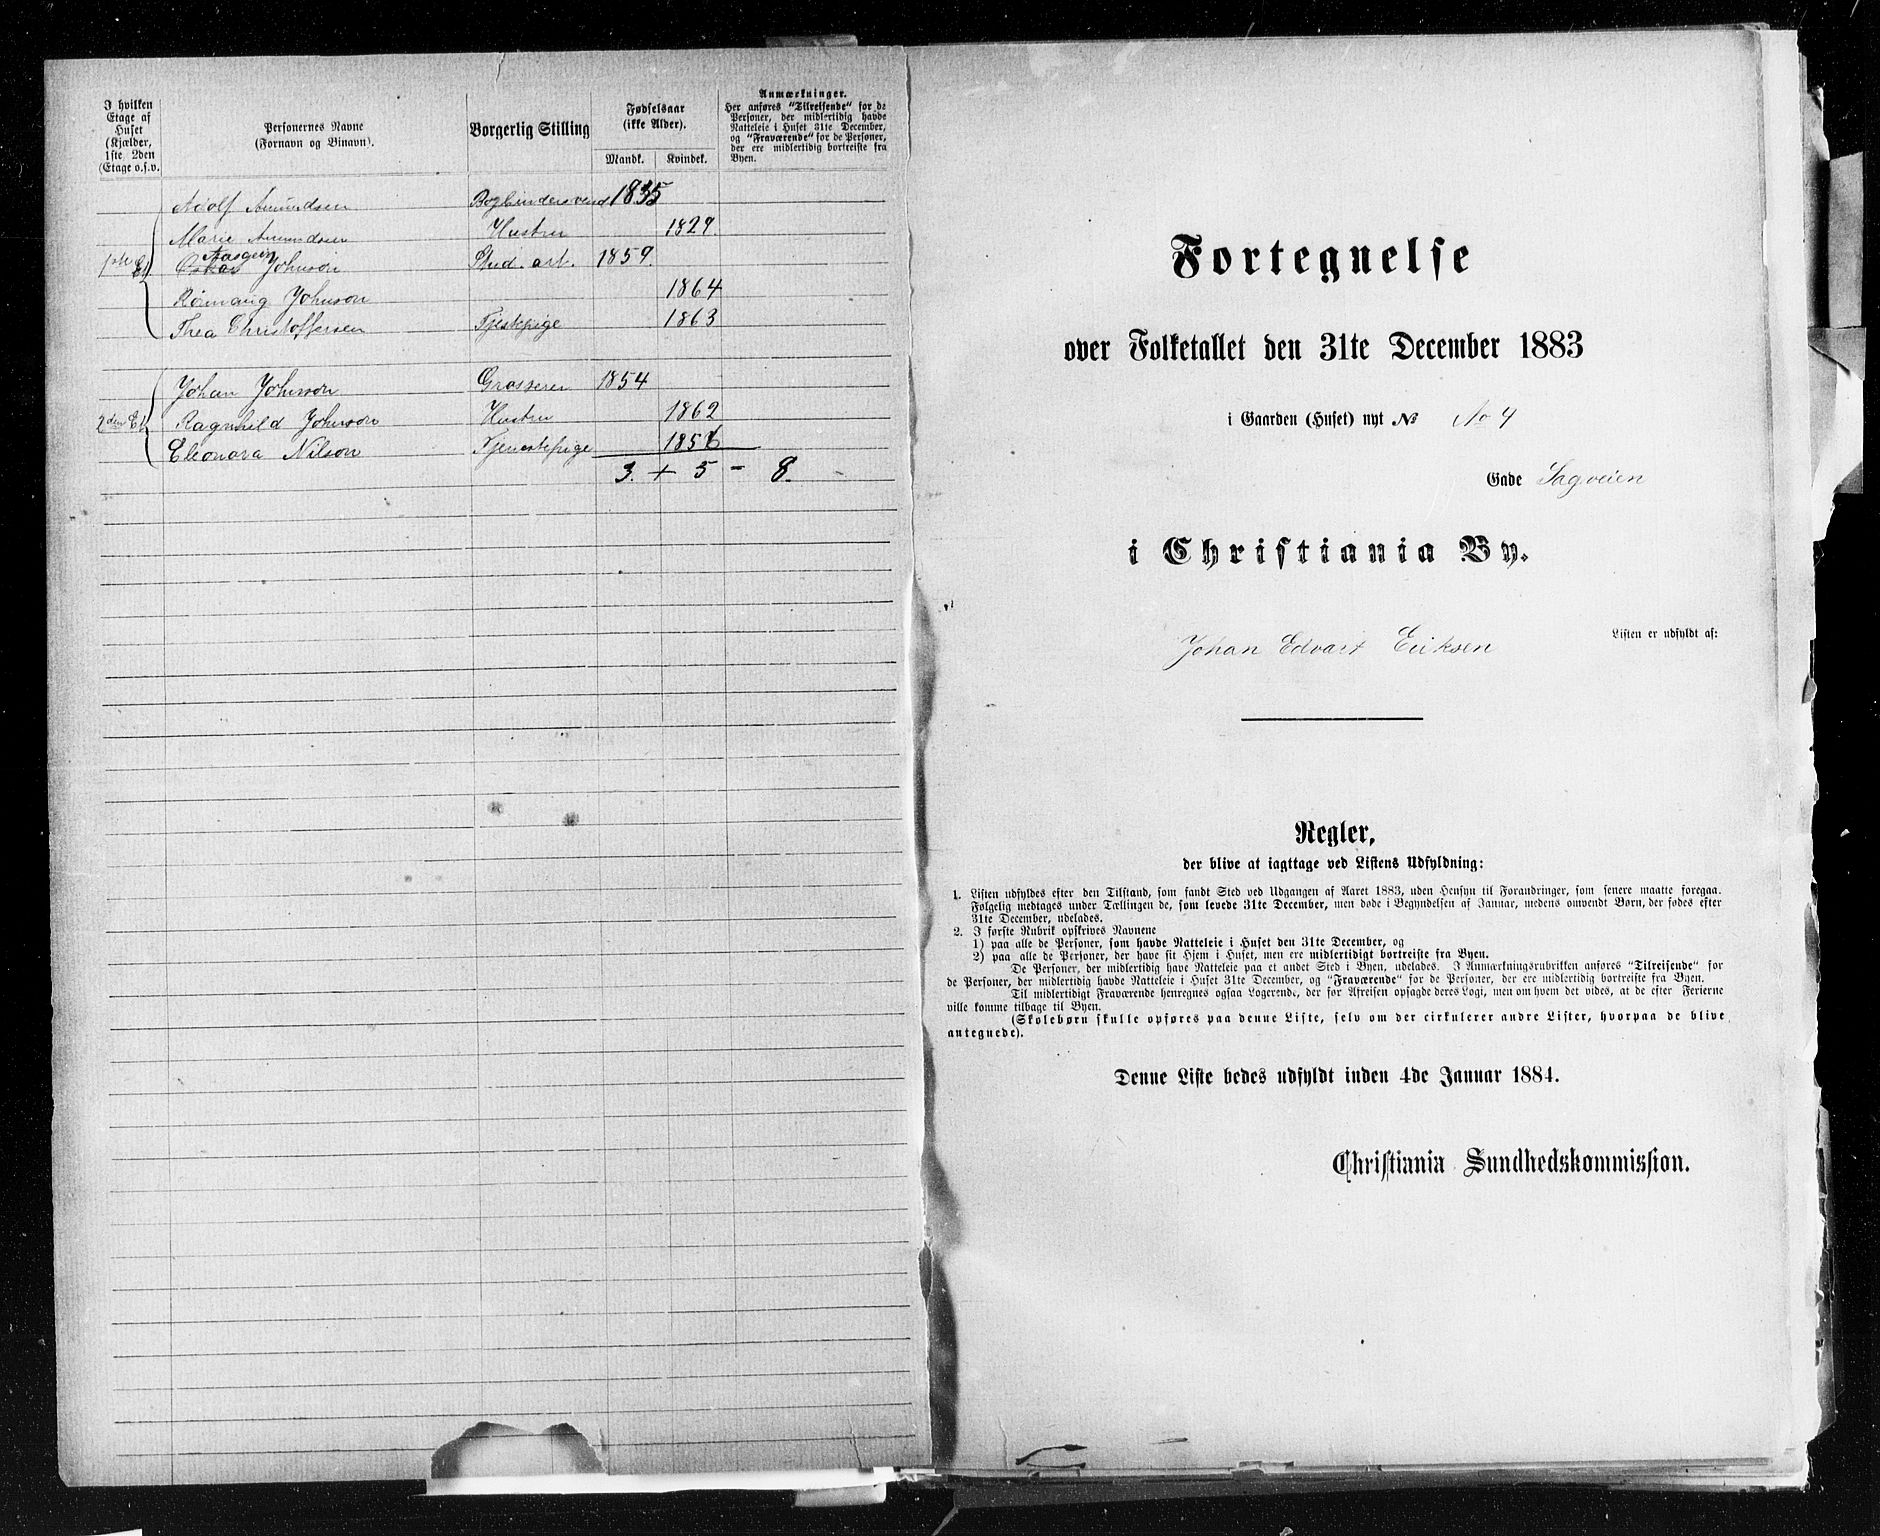 I hvilken
Etage af
Huset
(Kjælder,
1ste 2den
Etage o.s.v.
Personernes Navne
(Fornavn og Binavn).
Borgerlig Stilling
Fødselsaar
(ikke Alder).
Mandk. Kvindek.
Anmærkninger.
Her anføres "Tilreisende" for de
Personer, der midlertidig havde
Natteleie i Huset 31te December,
og "Fraværende" for de Personer,
der ere midlertidig bortreiste fra
Byen.
Adolf Amundsen Bogbindersvend 1835
Marie Amundsen Hustru 1829
Aasgeir
1ste Et. Oskar Johnson Stud. art. 1859
Johnson 1864
Thea Christoffersen Tjestepige 1863
Johan Johnson Grosserer 1854
2den Et. Ragnhild Johnson Hustru 1862
Eleonora Nilson Tjenestepige 1856
3. + 5 - 8. -
Fortegnelse
over Folketallet den 31te December 1883
i Gaarden (Huset) nyt № No 4
Gade Sagveien
i Christiania By.
Listen er udfyldt af:
Johan Edvart Eriksen
Regler,
der blive at iagttage ved Listens Udfyldning:
1. Listen udfyldes efter den Tilstand, som fandt Sted ved Udgangen af Aaret 1883, uden Hensyn til Forandringer, som senere maatte foregaa.
Følgelig medtages under Tællingen de, som levede 31te December, men døde i Begyndelsen af Januar, medens omvendt Børn, der fødes efter
31te December, udelades.
2. I første Rubrik opskrives Navnene
1) paa alle de Personer, som havde Natteleie i Huset den 31te December, og
2) paa alle de Personer, der have sit Hjem i Huset, men ere midlertidigt bortreiste fra Byen.
De Personer, der midlertidig have Natteleie paa et andet Sted i Byen, udelades. I Anmærkningsrubrikken anføres "Tilreisende" for
de Personer, der midlertidig havde Natteleie i Huset 31te December, og "Fraværende" for de Personer, der ere midlertidig bortreiste fra Byen.
Til midlertidigt Fraværende henregnes ogsaa Logerende, der før Afreisen opsagde deres Logi, men om hvem det vides, at de efter Ferierne
ville komme tilbage til Byen.
(Skolebørn skulle opføres paa denne Liste, selv om der cirkulerer andre Lister, hvorpaa de blive
antegnede).
Denne Liste bedes udfyldt inden 4de Januar 1884.
Christiania Sundhedskommission.